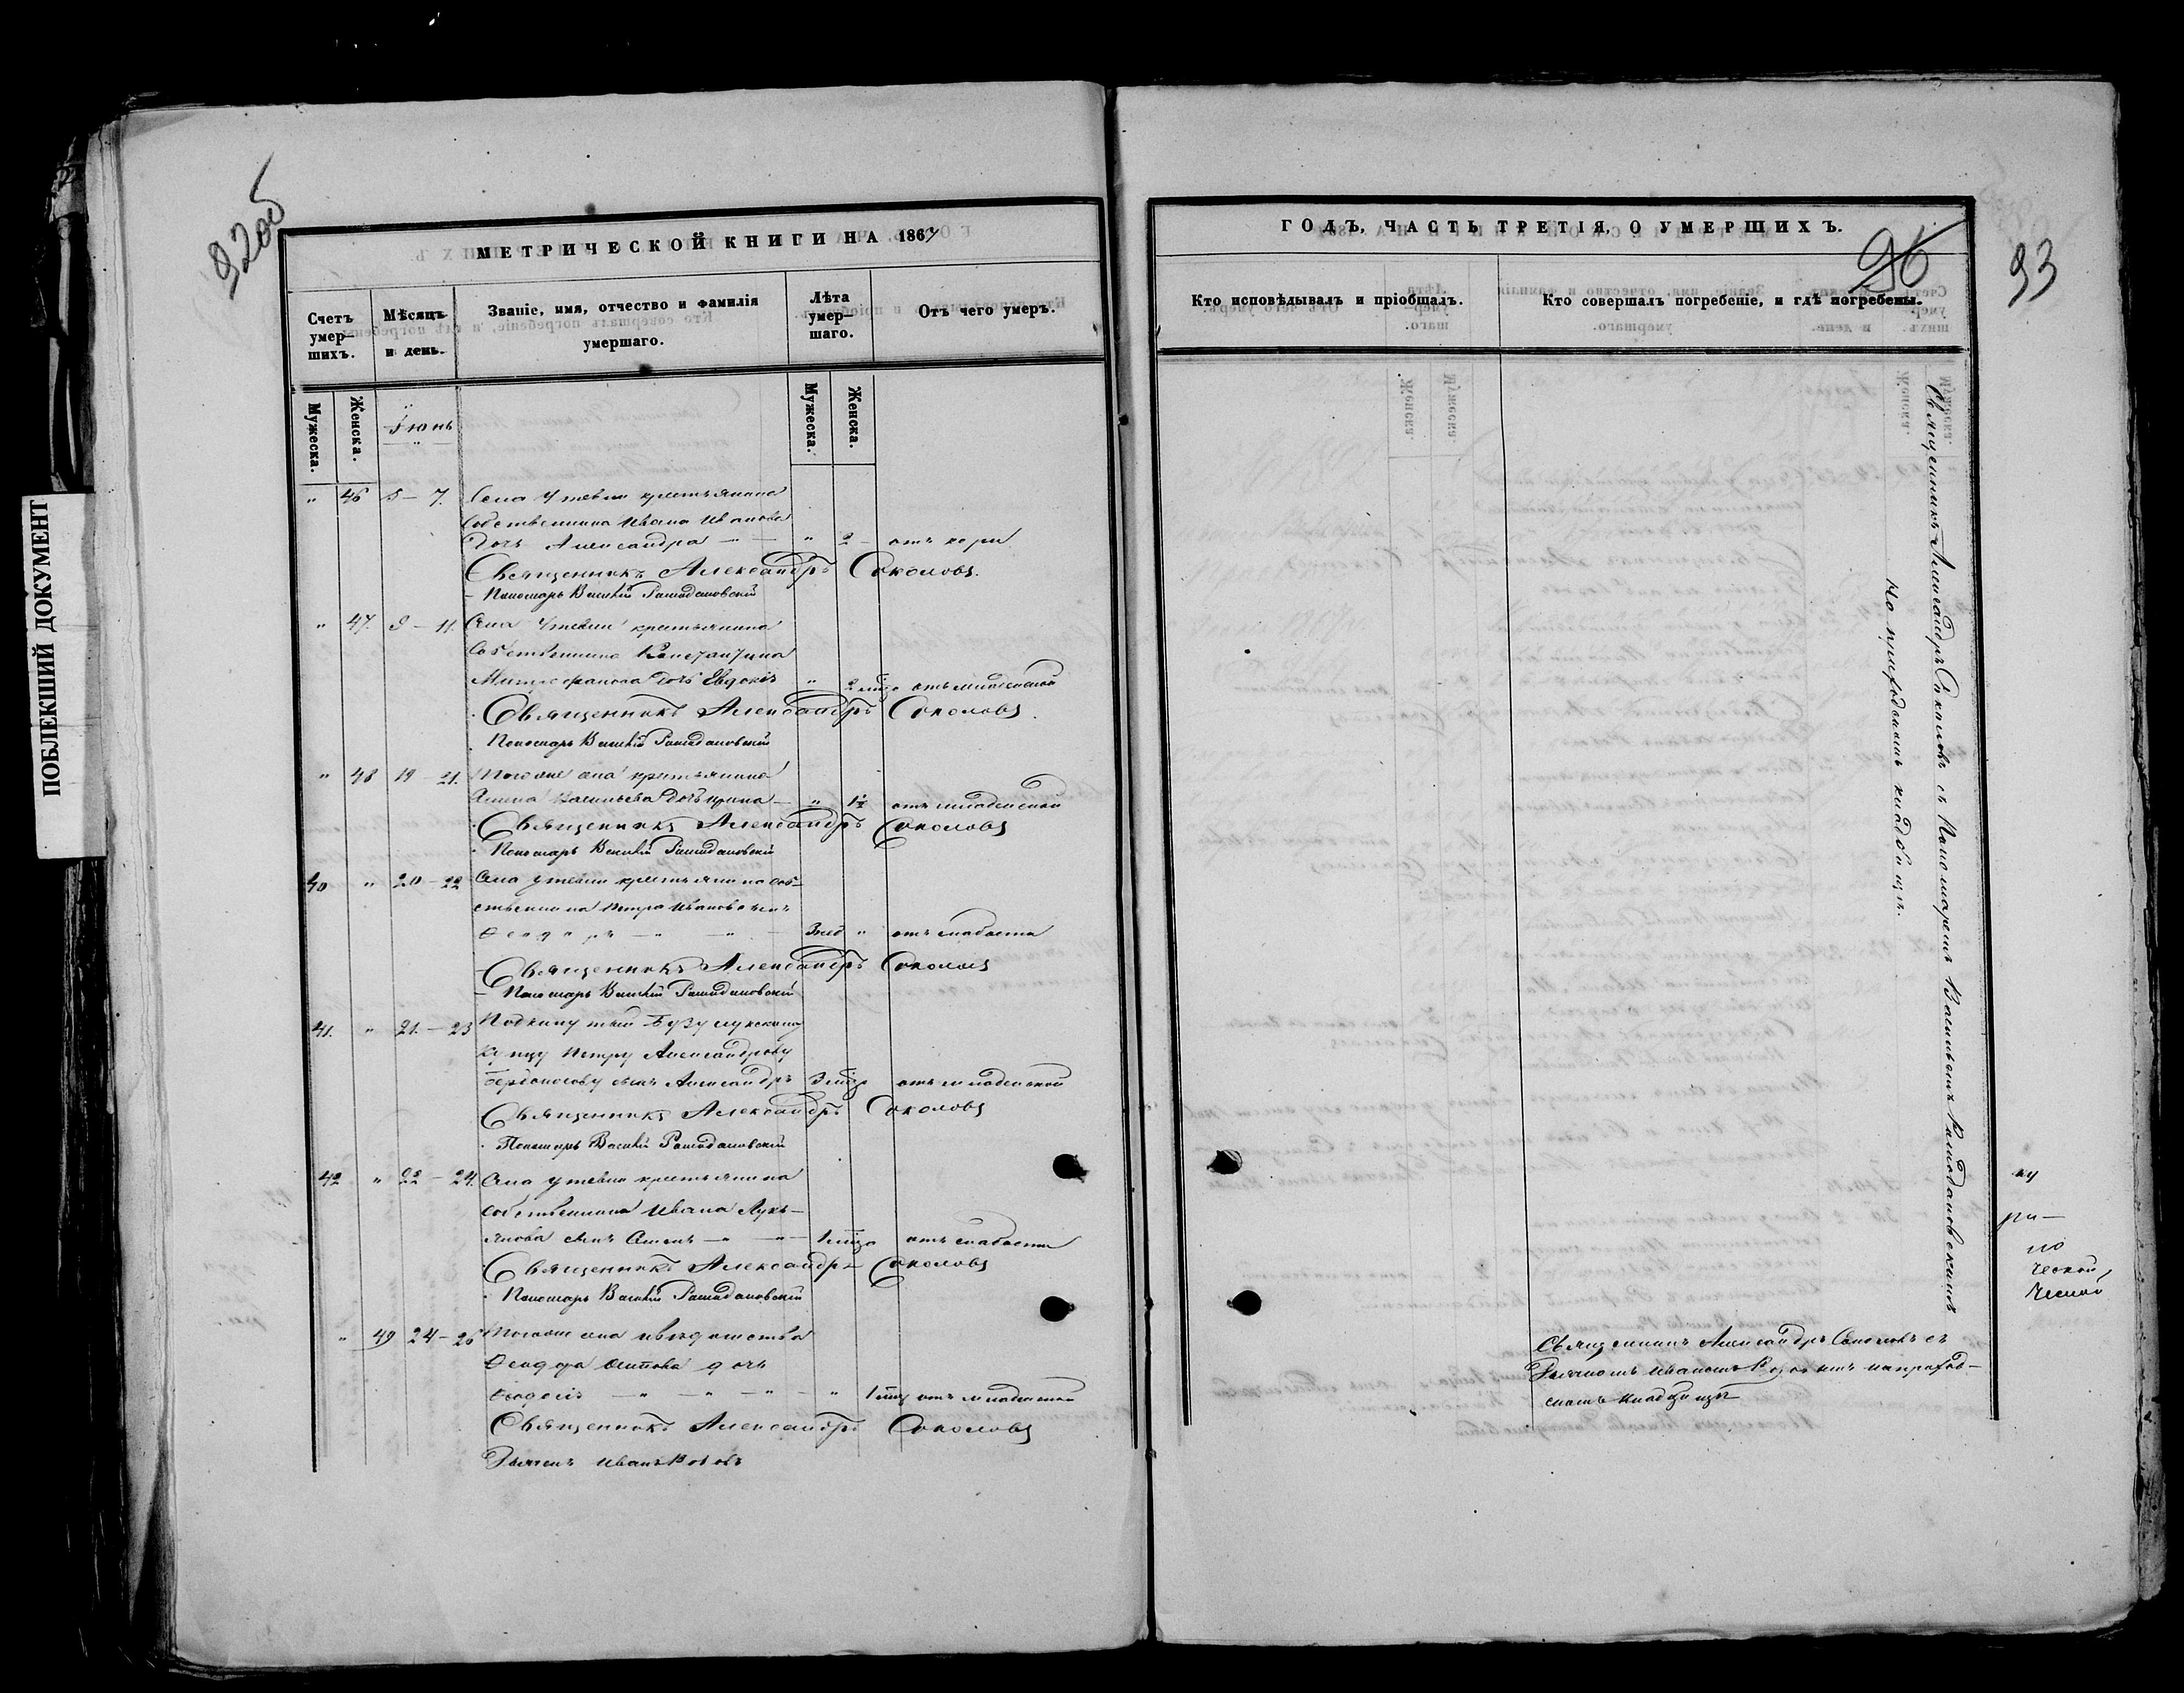 ПОБЛЕКШИЙ ДОКУМЕНТ
92об
МЕТРИЧЕСКОЙ КНИГИ НА 1867
Счетъ умер-шихъ.
Мѣсяцъ и день.
Званіе, имя, отчество и фамилія умершаго.
Лѣта умер-шаго.
Отъ чего умеръ.
Мужеска.
Женска.
Іюнь
Мужеска.
Женска.
" 46 5 – 7. Села Утевки крестьянина
Собственника Ивана Иванова
дочь Александра – " – " 2 – отъ кори
Священникъ Александръ Соколовъ.
Пономарь Василій Рамодановскій
" 47. 9 – 11. Села Утевки крестьянина
Собственника Константина
Митрофанова дочь Евдокія " 2 мѣс отъ младенской
Священникъ Александръ Соколовъ.
Пономарь Василій Рамодановскій
" 48 19 – 21. Того же села крестьянина
Васильева дочь Ирина – " 1½ отъ младенской
Священникъ Александръ Соколовъ
Пономарь Василій Рамодановскій
40 " 20 – 22 Села Утевки крестьянина соб-
ственника Петра Иванова сынъ
Ѳеодоръ – " – " – 3 нед " отъ слабости
Священникъ Александръ Соколовъ
Пономарь Василій Рамодановскій
41. " 21. – 23 Подкинутый Бузулукскому
купцу Петру Александрову
сынъ Александръ 3 мѣс отъ младенской
Священникъ Александръ Соколовъ
Пономарь Василій Рамодановскій
42 " 22 – 24. Села Утевки крестьянина
собственника Ивана Лукь-
янова сынъ – " – " – 1 мѣс отъ слабости
Священникъ Александръ Соколовъ
Пономарь Василій Рамодановскій
" 49 24 – 26 Того же села вѣдомства
Ѳеодора Осипова дочь
– " – " – " – " 1 отъ младенской
Священникъ Александръ Соколовъ
Дьячекъ Иванъ
ГОДЪ, ЧАСТЬ ТРЕТІЯ, О УМЕРШИХЪ.
96
93
Кто исповѣдывалъ и пріобщалъ.
Кто совершалъ погребеніе, и гдѣ погребены.
Священникъ Александръ Соколовъ съ Пономаремъ Васильемъ Рамодановскимъ
На приходскомъ кладбищѣ.
Священникъ Александръ Соколовъ съ
Дьячкомъ Иваномъ на приход-
скомъ кладбищѣ
ну
ри–
но
ческой,
ческой